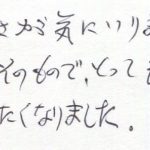 さが気にいりま
そのもので、とっても
たくなりました。